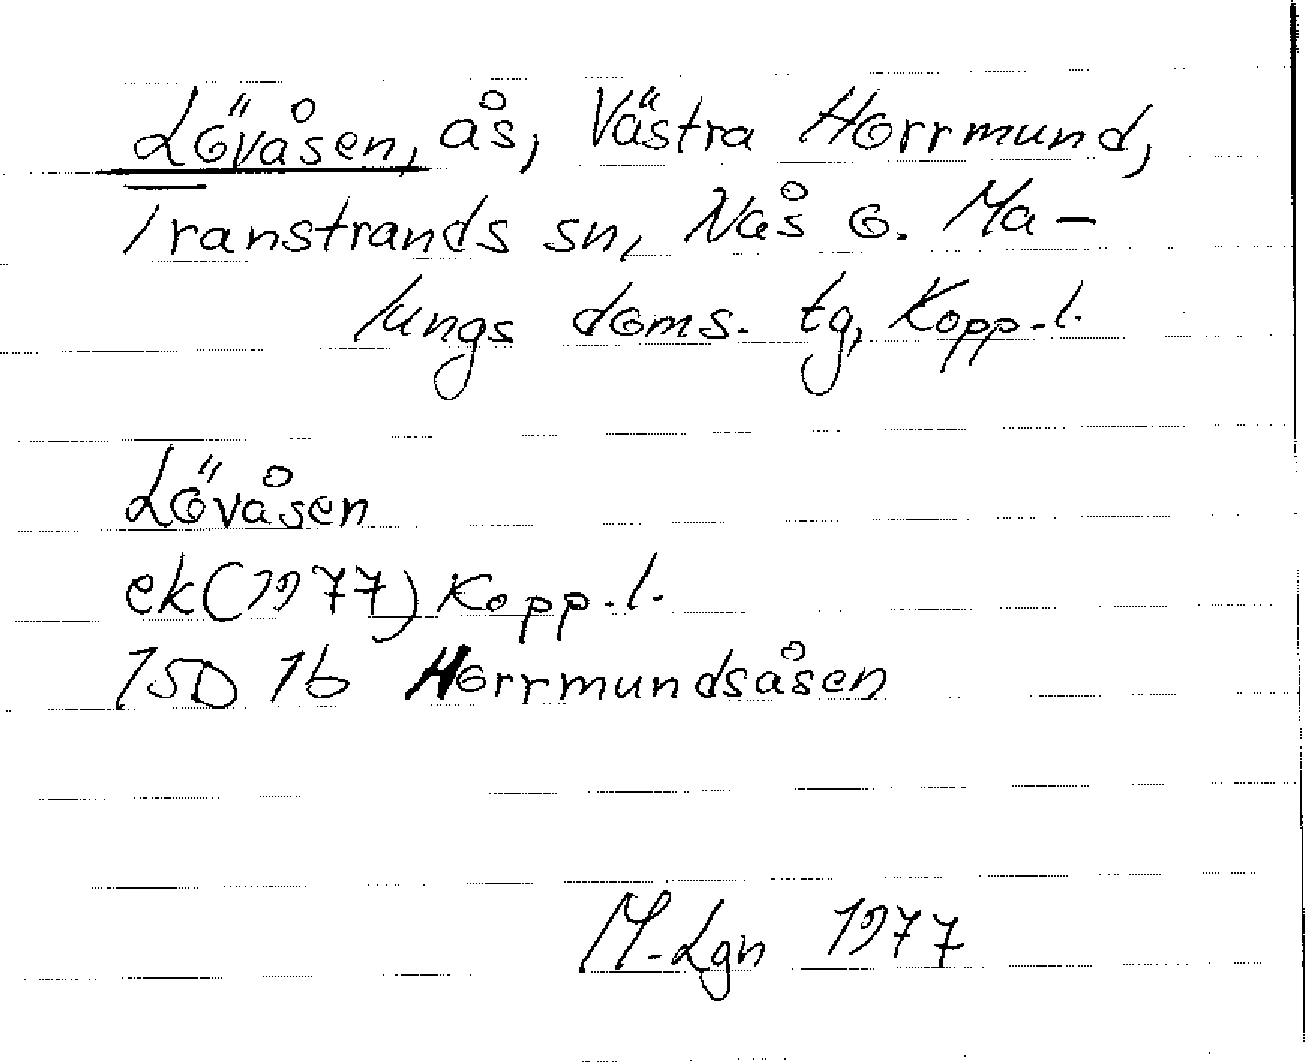 Lövåsen, ås, Västra Horrmund,
Transtrands sn, Nås o. Ma-
lungs doms. tg, Kopp.l.
Lövåsen
ek(1977) Kopp.l.
15D 1b Horrmundsåsen
M-Lgn 1977